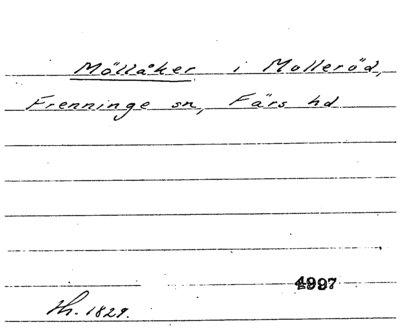 Möllåker i Molleröd,
Frenninge sn, Färs hd
4997
Th. 1829.